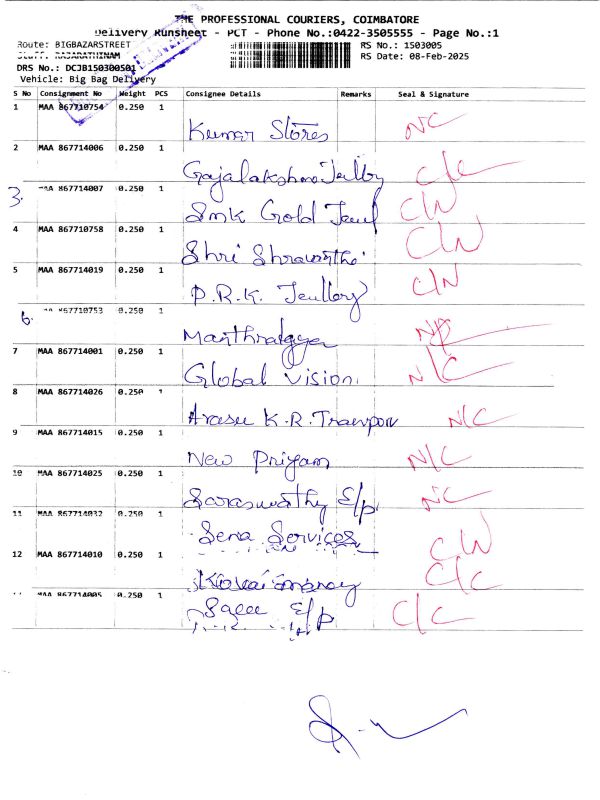 THE PROFESSIONAL COURIERS, COIMBATORE
Delivery Runsheet - PCT - Phone No.:0422-3505555 - Page No.:1
Route: BIGBAZARSTREET RS No.: 1503005
Staff: RAJARATHINAM RS Date: 08-Feb-2025
DRS No.: DCJB150300501
Vehicle: Big Bag Delivery
S No Consignment No Weight PCS Consignee Details Remarks Seal & Signature
1 MAA 867710754 0.250 1
Kumar Stores N/C
2 MAA 867714006 0.250 1
Gajalakshmi Jewllry C/C
3. MAA 867714007 0.250 1
Smk Gold Jewl C/N
4 MAA 867710758 0.250 1
Shri C/N
5 MAA 867714019 0.250 1
P.R.K. Jewllery C/N
6. MAA 867710753 0.250 1
7 MAA 867714001 0.250 1
Global Vision N/C
8 MAA 867714026 0.250 1
Arasu K.R. N/C
9 MAA 867714015 0.250 1
New Priyam N/C
10 MAA 867714025 0.250 1
Saraswathy E/p N/C
11 MAA 867714032 0.250 1
Sena Services C/N
12 MAA 867714010 0.250 1
C/C
MAA 867714005 0.250 1
E/p C/C